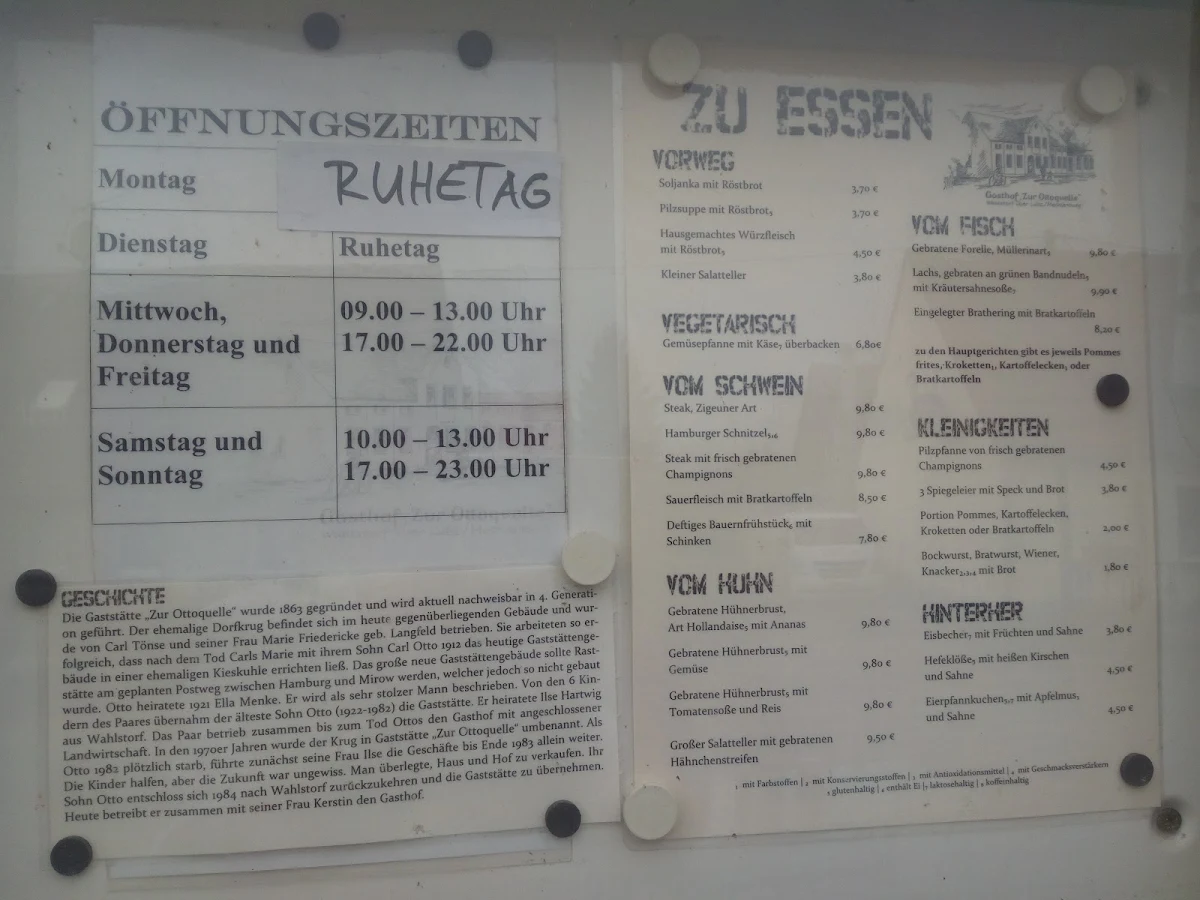 ÖFFNUNGSZEITEN
Montag RUHETAG
Dienstag Ruhetag
Mittwoch, 09.00 – 13.00 Uhr
Donnerstag und 17.00 – 22.00 Uhr
Freitag
Samstag und 10.00 – 13.00 Uhr
Sonntag 17.00 – 23.00 Uhr
GESCHICHTE
Die Gaststätte „Zur Ottoquelle“ wurde 1863 gegründet und wird aktuell nachweisbar in 4. Generati-
on geführt. Der ehemalige Dorfkrug befindet sich im heute gegenüberliegenden Gebäude und wur-
de von Carl Tönse und seiner Frau Marie Friedericke geb. Langfeld betrieben. Sie arbeiteten so er-
folgreich, dass nach dem Tod Carls Marie mit ihrem Sohn Carl Otto 1912 das heutige Gaststättenge-
bäude in einer ehemaligen Kieskuhle errichten ließ. Das große neue Gaststättengebäude sollte Rast-
stätte am geplanten Postweg zwischen Hamburg und Mirow werden, welcher jedoch so nicht gebaut
wurde. Otto heiratete 1921 Ella Menke. Er wird als sehr stolzer Mann beschrieben. Von den 6 Kin-
dern des Paares übernahm der älteste Sohn Otto (1922-1982) die Gaststätte. Er heiratete Ilse Hartwig
aus Wahlstorf. Das Paar betrieb zusammen bis zum Tod Ottos den Gasthof mit angeschlossener
Landwirtschaft. In den 1970er Jahren wurde der Krug in Gaststätte „Zur Ottoquelle“ umbenannt. Als
Otto 1982 plötzlich starb, führte zunächst seine Frau Ilse die Geschäfte bis Ende 1983 allein weiter.
Die Kinder halfen, aber die Zukunft war ungewiss. Man überlegte, Haus und Hof zu verkaufen. Ihr
Sohn Otto entschloss sich 1984 nach Wahlstorf zurückzukehren und die Gaststätte zu übernehmen.
Heute betreibt er zusammen mit seiner Frau Kerstin den Gasthof.
ZU ESSEN
Gasthof „Zur Ottoquelle“
VORWEG
Soljanka mit Röstbrot 3,70 €
Pilzsuppe mit Röstbrot₅ 3,70 €
Hausgemachtes Würzfleisch
mit Röstbrot₅ 4,50 €
Kleiner Salatteller 3,80 €
VEGETARISCH
Gemüsepfanne mit Käse₇ überbacken 6,80€
VOM SCHWEIN
Steak, Zigeuner Art 9,80 €
Hamburger Schnitzel₅,₆ 9,80 €
Steak mit frisch gebratenen
Champignons 9,80 €
Sauerfleisch mit Bratkartoffeln 8,50 €
Deftiges Bauernfrühstück₆ mit
Schinken 7,80 €
VOM HUHN
Gebratene Hühnerbrust,
Art Hollandaise₅ mit Ananas 9,80 €
Gebratene Hühnerbrust₅ mit
Gemüse 9,80 €
Gebratene Hühnerbrust₅ mit
Tomatensoße und Reis 9,80 €
Großer Salatteller mit gebratenen 9,50 €
Hähnchenstreifen
VOM FISCH
Gebratene Forelle, Müllerinart₅ 9,80 €
Lachs, gebraten an grünen Bandnudeln₅
mit Kräutersahnesoße₇ 9,90 €
Eingelegter Brathering mit Bratkartoffeln
8,20 €
zu den Hauptgerichten gibt es jeweils Pommes
frites, Kroketten₁, Kartoffelecken₅ oder
Bratkartoffeln
KLEINIGKEITEN
Pilzpfanne von frisch gebratenen
Champignons 4,50 €
3 Spiegeleier mit Speck und Brot 3,80 €
Portion Pommes, Kartoffelecken,
Kroketten oder Bratkartoffeln 2,00 €
Bockwurst, Bratwurst, Wiener,
Knacker₂,₃,₄ mit Brot 1,80 €
HINTERHER
Eisbecher₇ mit Früchten und Sahne 3,80 €
Hefeklöße₅ mit heißen Kirschen
und Sahne 4,50 €
Eierpfannkuchen₅,₇ mit Apfelmus,
und Sahne 4,50 €
₁ mit Farbstoffen | ₂ mit Konservierungsstoffen | ₃ mit Antioxidationsmittel | ₄ mit Geschmacksverstärkern
₅ glutenhaltig | ₆ enthält Ei |₇ laktosehaltig | ₈ koffeinhaltig